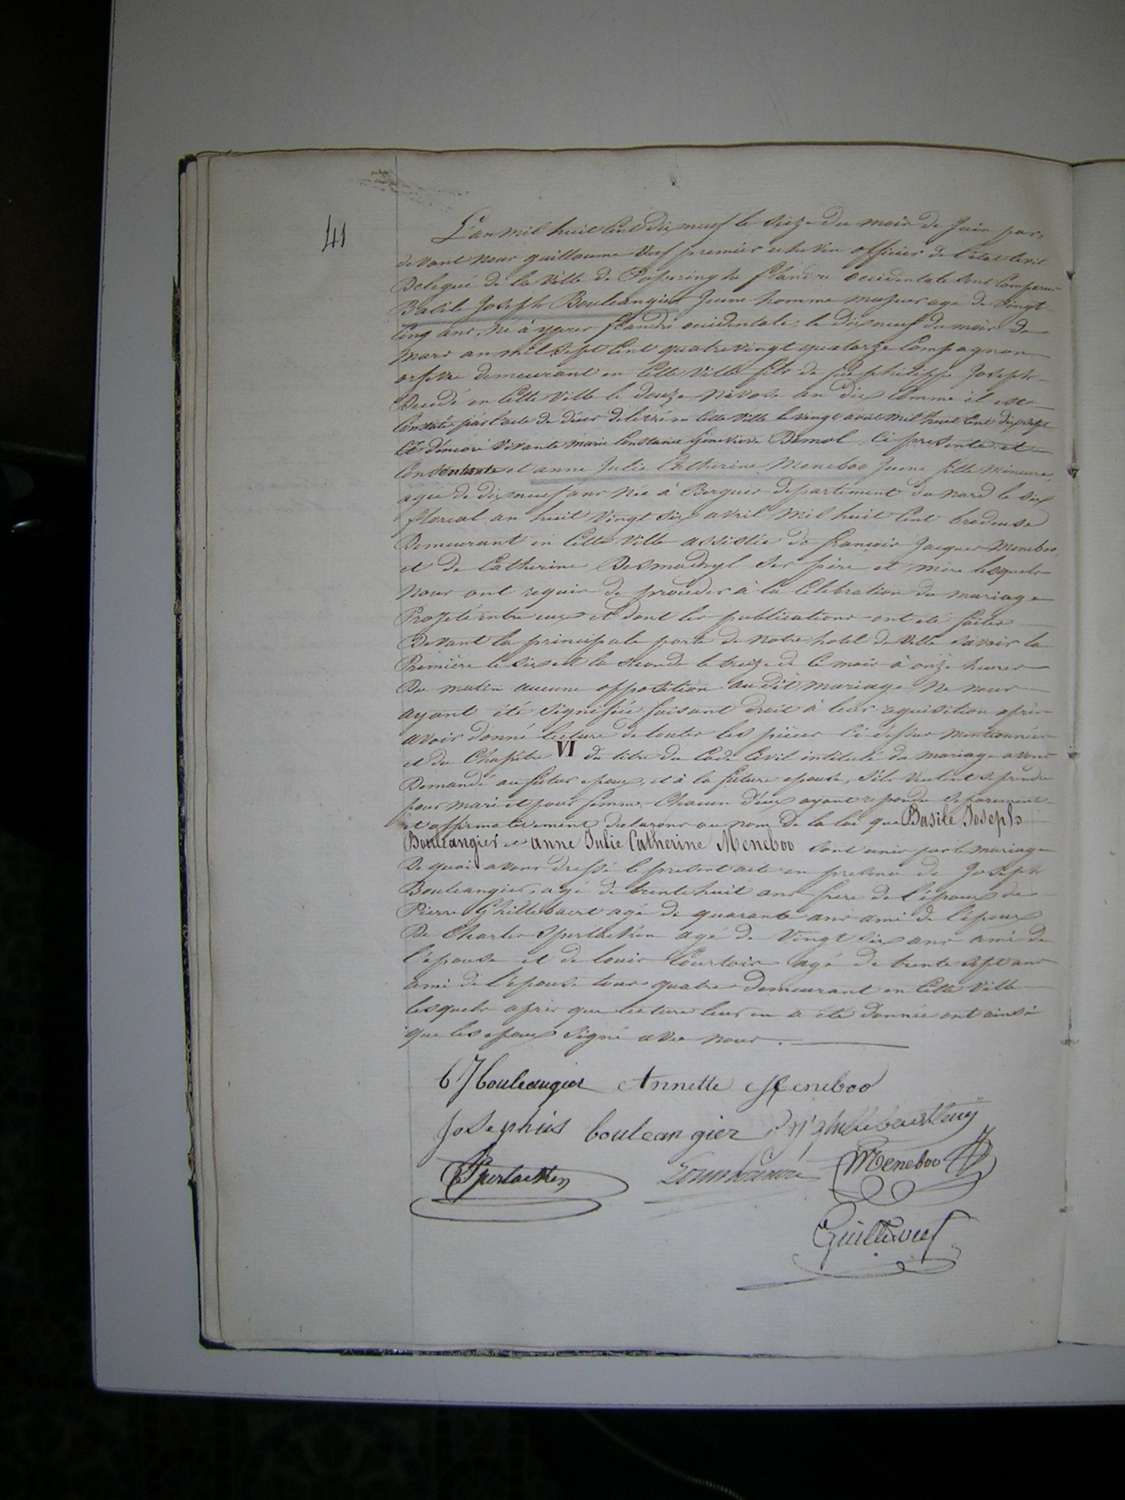 41
L'an mil huit Cent dix neuf le seize du mois de Juin par,
devant nous guillaume Vuf premier echevin officier de l'état Civil
Delegué de la Ville de Poperinghe flandre occidentale sont Comparus
Basile Joseph Bouleangier Jeune homme majeur age de vingt
Cinq ans, Né à ypres flandre occidentale, le dix neuf du mois de
mars an mil sept Cent quatre vingt quatorze Compagnon
orfevre demeurant en Cette Ville fils de feu philippe Joseph
Decedé en Cette Ville le douze Nivose an dix Comme il est
Constaté par l'acte de déces delivré en Cette Ville le vingt avril mil huit Cent dix sept
Et d'encore Vivante marie Constance Genevieve Bamol, Ci presente et
Consentante et anne Julie Catherine Meneboo Jeune fille Mineure,
agée de dix neuf ans Née à Bergues departement du nord le six
floreal an huit Vingt Six avril Mil huit Cent brodeuse
Demeurant en Cette Ville assistée de françois Jacques Meneboo,
et de Catherine Desmadryl Ses père et mère lesquels
Nous ont requis de procéder à la Celebration du mariage
Projeté entre eux et dont les publications ont été faites
Devant la principale porte de notre hotel de Ville Savoir la
Première le Six et la seconde le treize de Ce mois à onze heures
Du matin aucune opposition audit mariage Ne nous
ayant été signifiée faisant droit à leur requisition après
avoir donné lecture de toutes les pièces Ci dessus mentionnées
et du Chapitre VI du titre du Code Civil intitulé du Mariage avons
Demandé au futur epoux, et à la future epouse, S'ils veulent se prendre
pour mari et pour femme Chacun d'eux ayant repondu Separement
et affirmativement, declarons au nom De la loi que Basile Joseph
Bouleangier et anne Julie Catherine Meneboo Sont unis par le mariage
De quoi avons dressé le present acte en presence de Joseph
Bouleangier, agé de trente huit ans frere de l'époux de
Pierre Ghillebaert agé de quarante ans ami de l'epoux
De Charles Spertackien agé de Vingt Six ans ami de
l'epouse et de louis Courtois agé de trente Sept ans
ami de l'épouse tous quatre demeurant en Cette Ville
lesquels après que lecture leur en a été donnée ont ainsi
que les epoux Signé avec nous.
Bouleangier Annette Meneboo
Josephus bouleangier
Meneboo